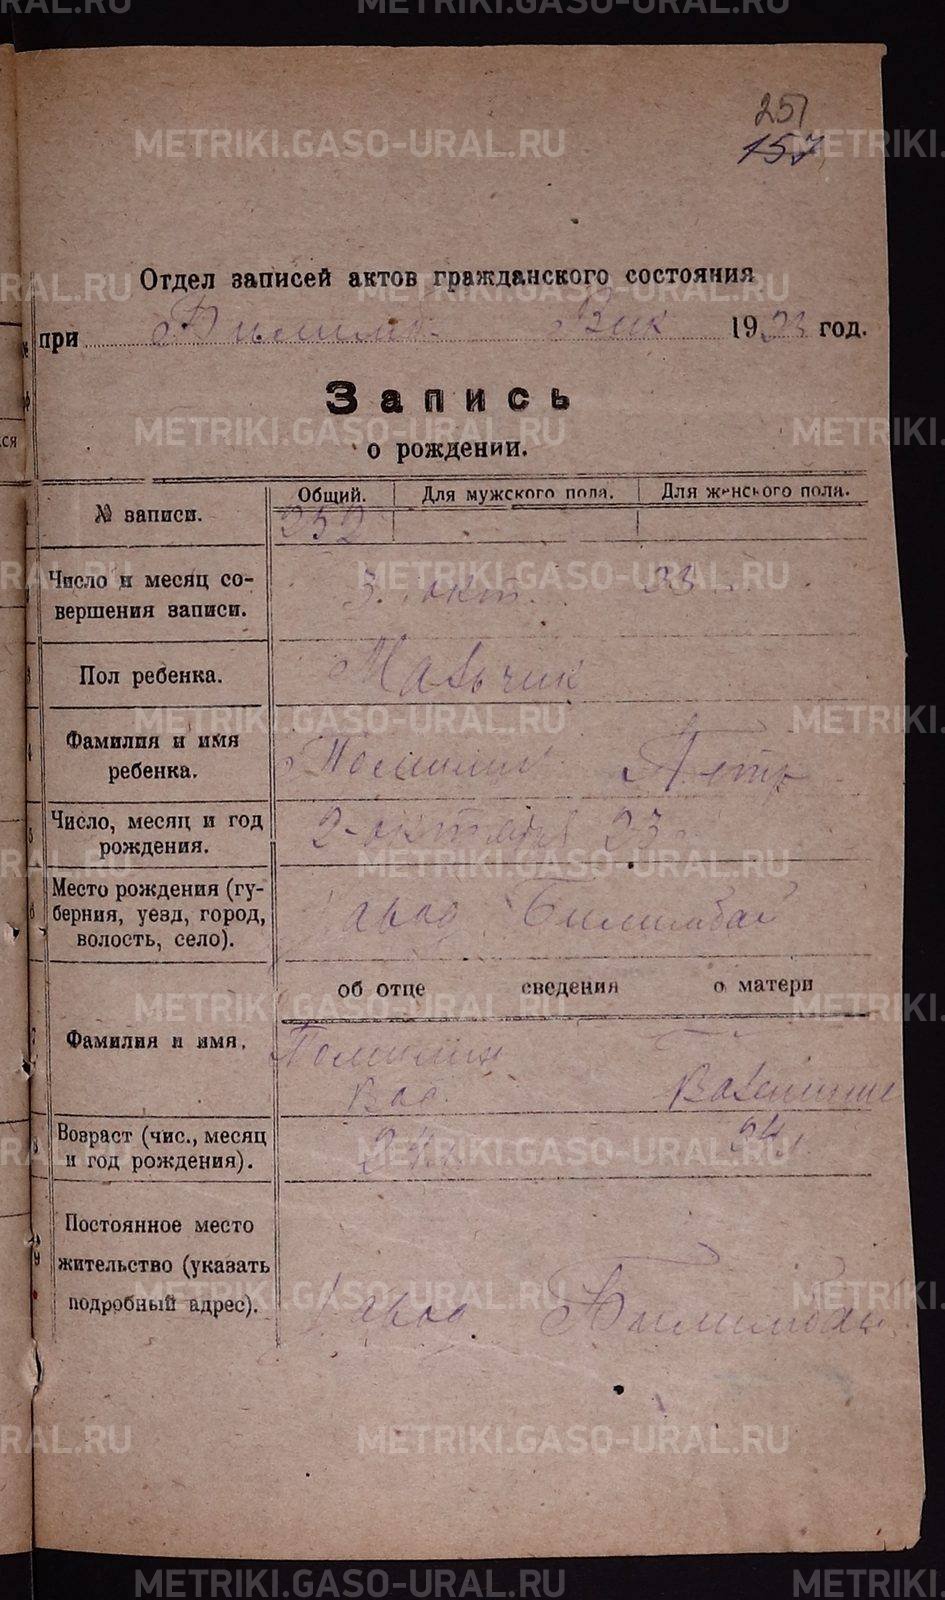 251
157
Отдел записей актов гражданского состояния
при Билимб. Вик 1923 год.
Запись
о рождении.
№ записи.
Общий.
Для мужского пола.
Для женского пола.
252
Число и месяц со-
вершения записи.
3. окт. 23 г.
Пол ребенка.
Мальчик
Фамилия и имя
ребенка.
Петр
Число, месяц и год
рождения.
2 октября 23 г.
Место рождения (гу-
берния, уезд, город,
волость, село).
завод Билимбай
об отце сведения о матери
Фамилия и имя.
Возраст (чис., месяц
и год рождения).
24
Постоянное место
жительство (указать
подробный адрес).
завод Билимбай
METRIKI.GASO-URAL.RU